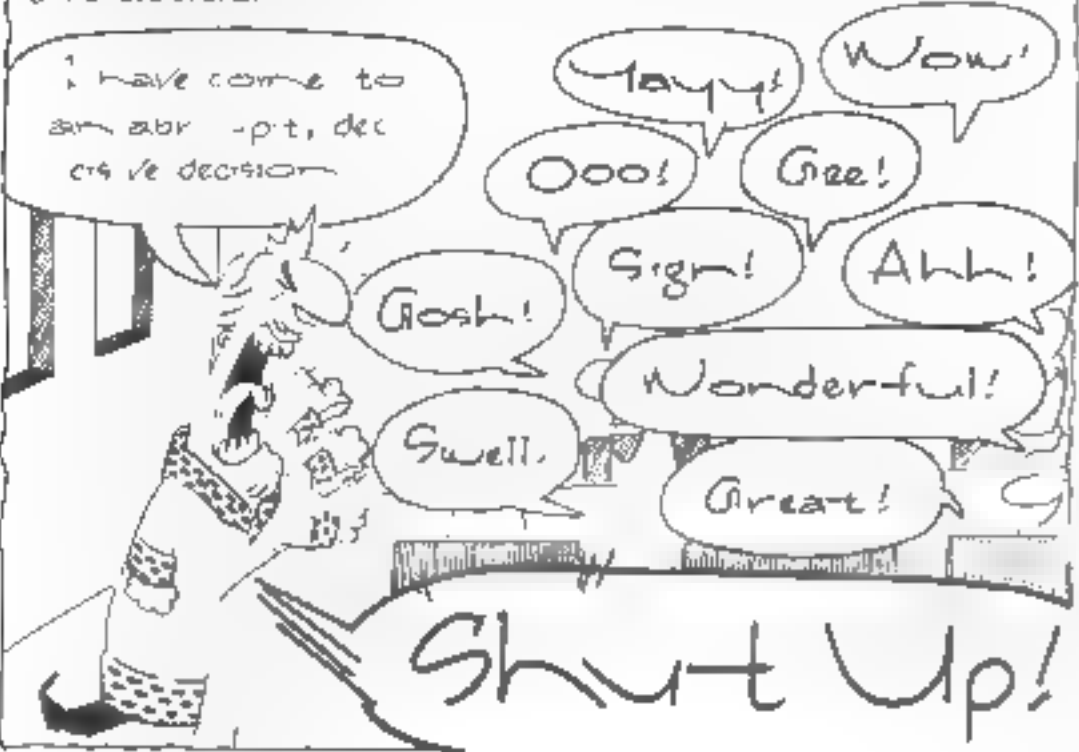 i have come to
an abr -pt, dec
cisive decision
Yayy!
Wow!
Ooo!
Gee!
Gosh!
Sigh!
Ahh!
Wonderful!
Swell.
Great!
Shut Up!